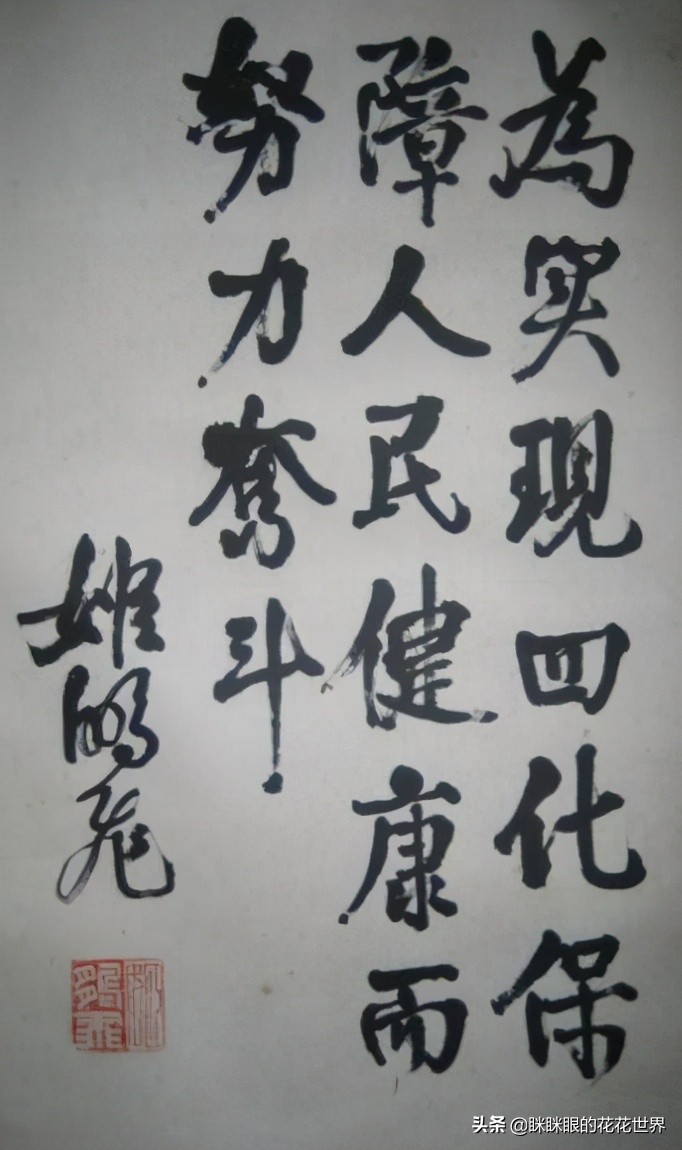 為实现四化保
障人民健康而
努力奮斗
姬鹏飛
头条 @眯眯眼的花花世界